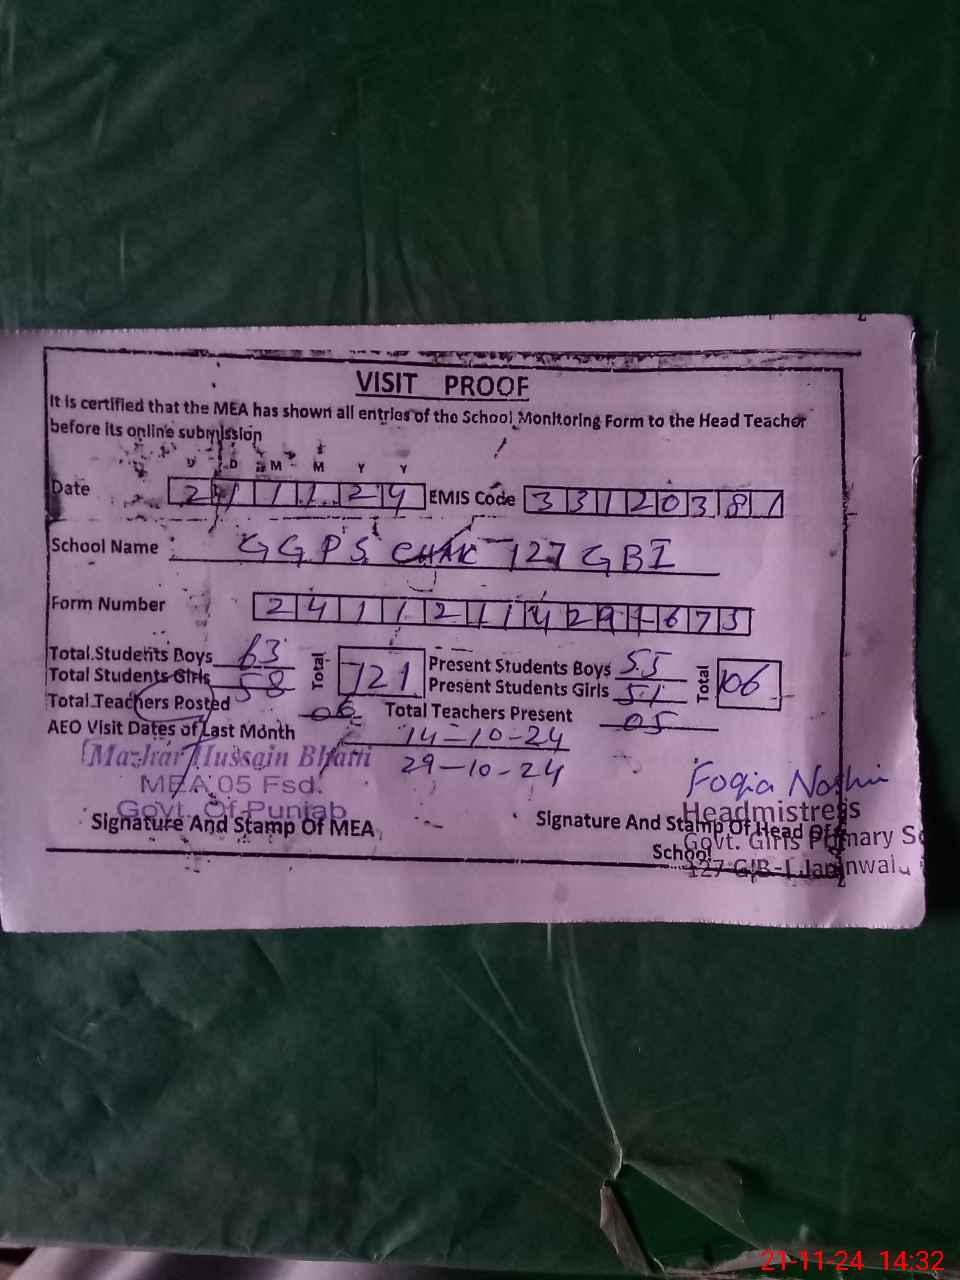 VISIT PROOF
It is certified that the MEA has shown all entries of the School Monitoring Form to the Head Teacher
before its online submission
D D M M Y Y
Date 21 11 24 EMIS Code 33120381
School Name GGPS CHAK 127 GBI
Form Number 24112114291673
Total Students Boys 63 Total 121 Present Students Boys 55 Total 106
Total Students Girls 58 Present Students Girls 51
Total Teachers Posted 06 Total Teachers Present 05
AEO Visit Dates of Last Month 14-10-24
29-10-24
Mazhar Hussain Bhatti
MEA 05 Fsd.
Govt. Of Punjab
Signature And Stamp Of MEA
Foqia
Headmistress
Signature And Stamp Of Head Of
School
Govt. Girls Primary
127 G/B-I
21-11-24 14:32